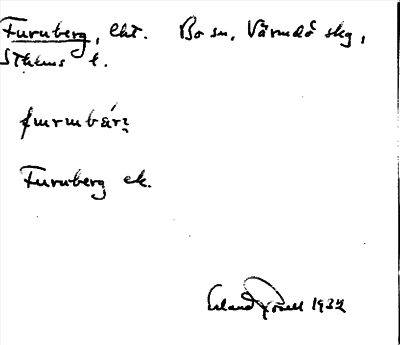 Furuberg, lht. Bo sn, Värmdö skg,
Sthlms l.
furubär̃
Furuberg ek.
Erland Rosell 1932